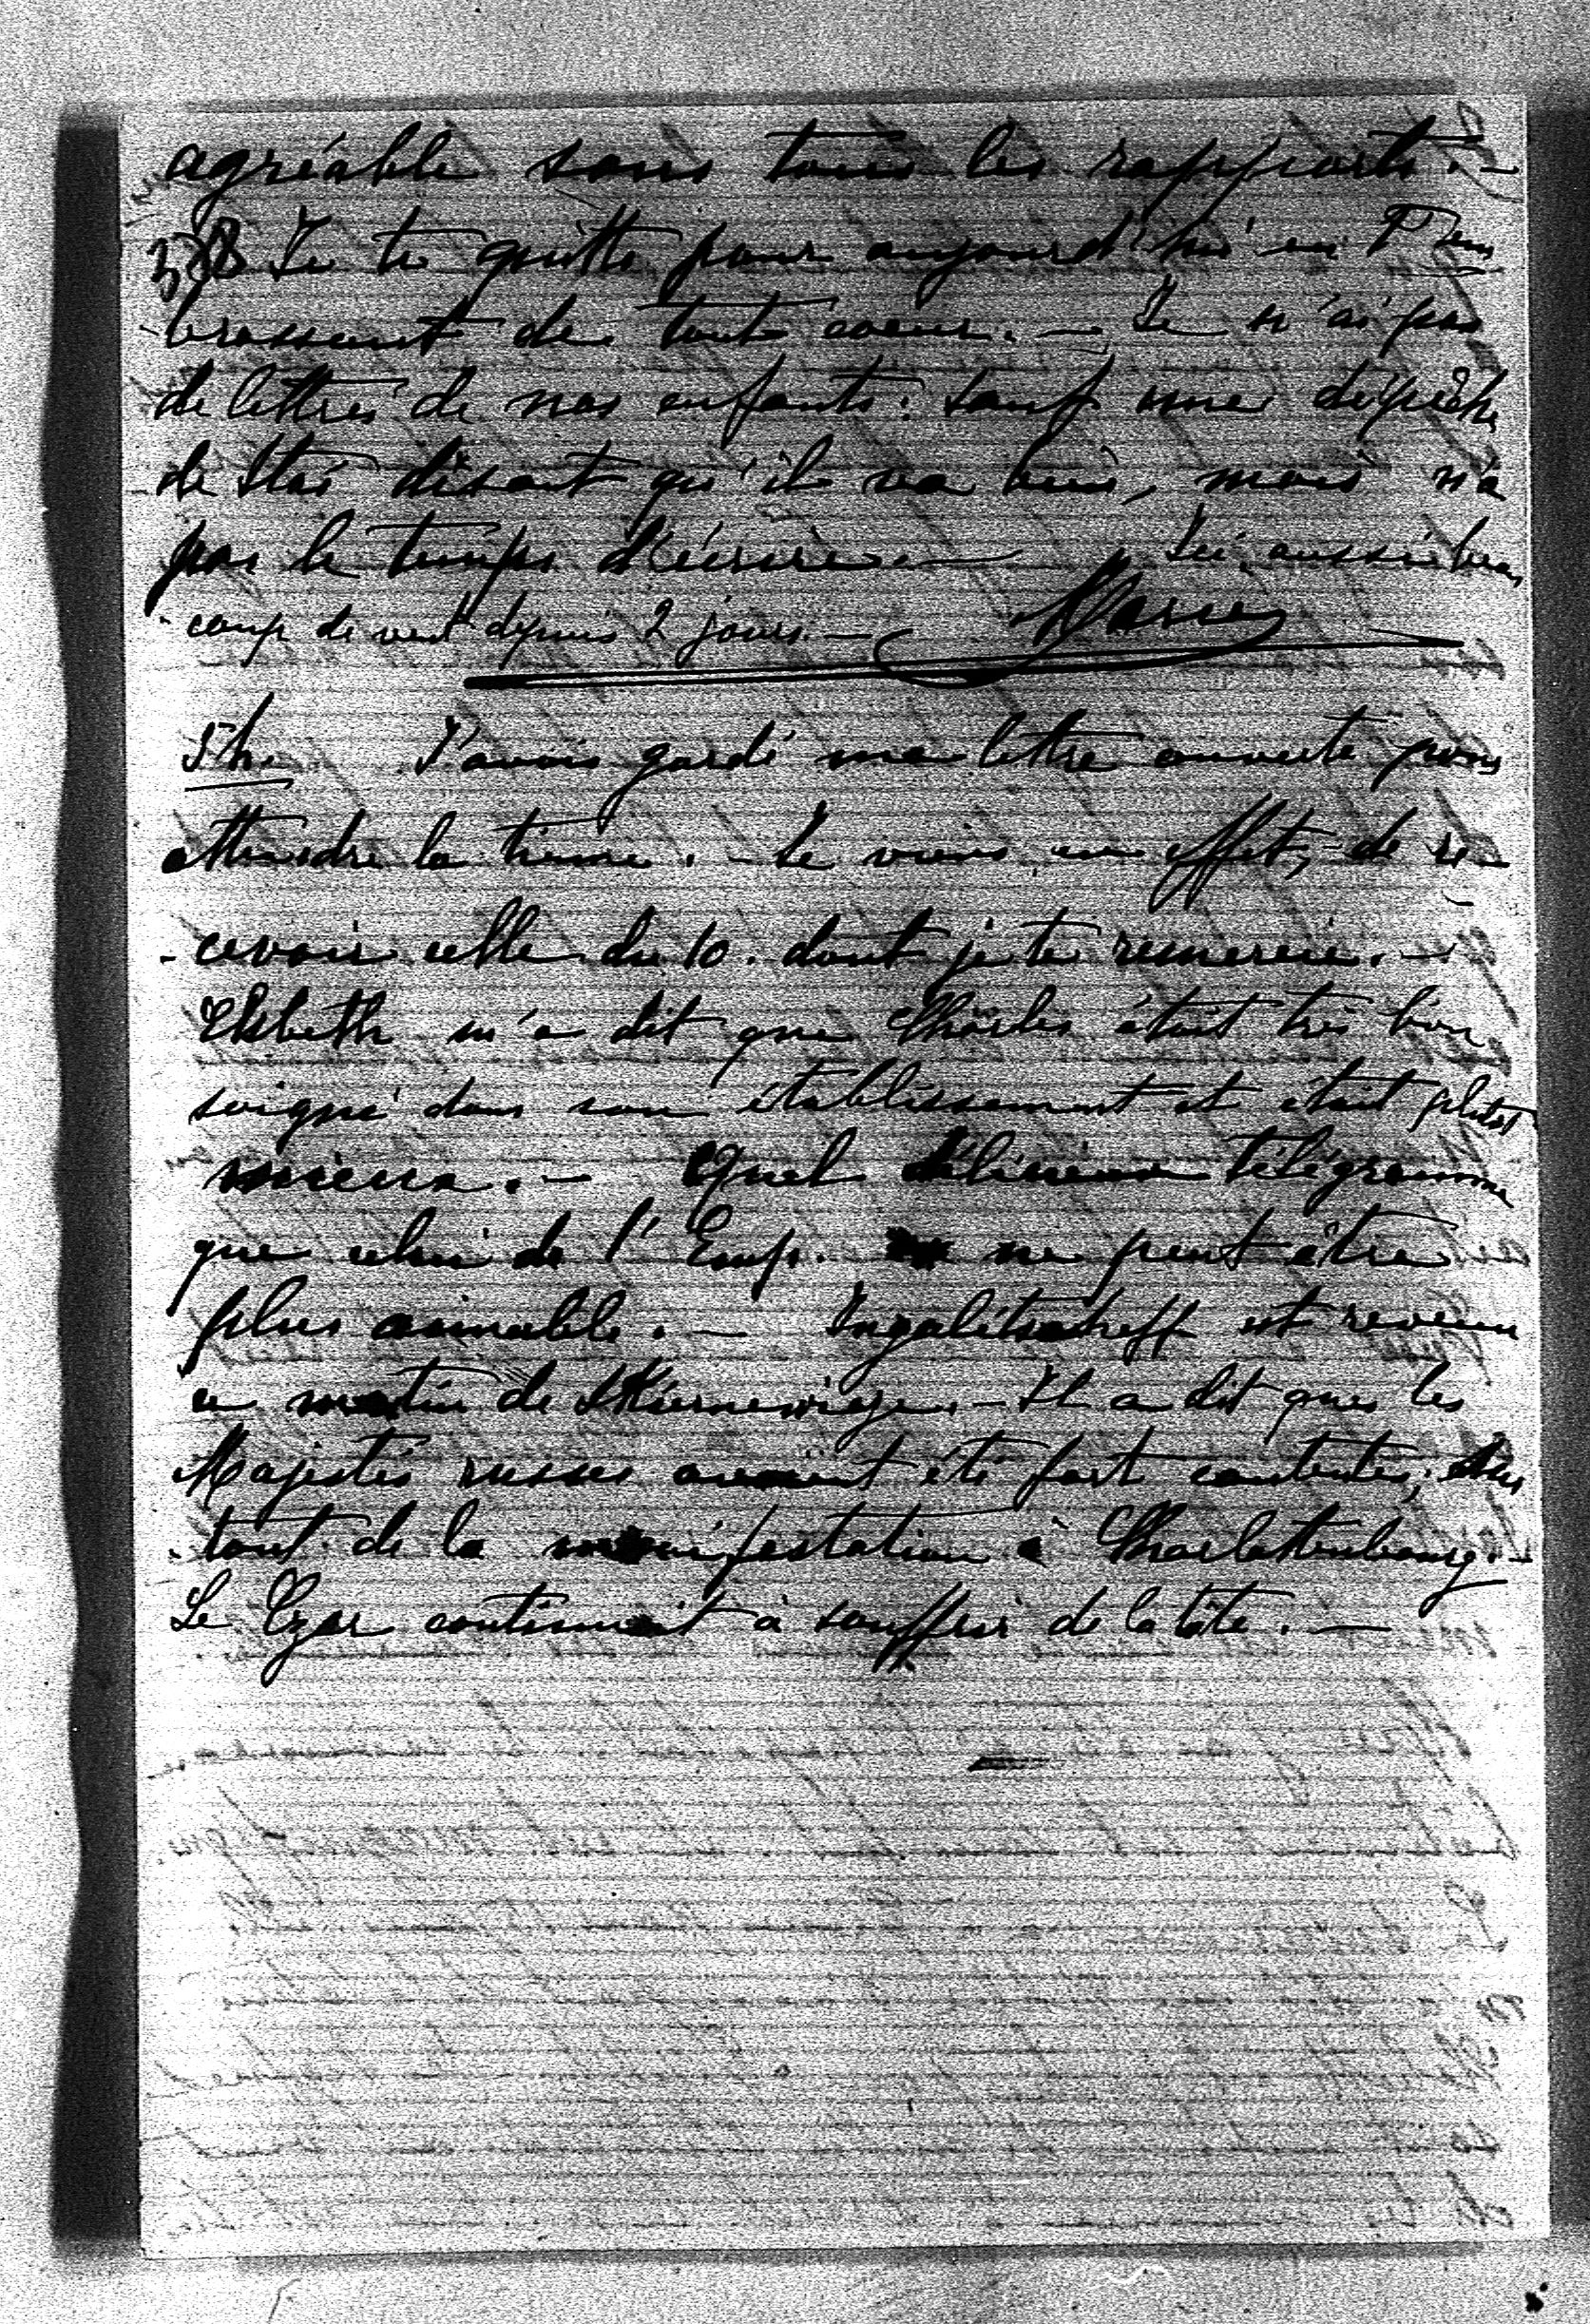 agréable sous tous les rapports. -
Je te quitte pour aujourd'hui en t'em
brassant de tout coeur. - Je n'ai pas
de lettres de nos enfants. Sauf une dépêche
de Stas disant qu'il va bien, mais n'a
pas le temps d'écrire. - Ici aussi beau
- coup de vent depuis 2 jours. - Marie
5 h. J'avais gardé ma lettre ouverte pour
attendre la tienne. - Je viens en effet, de re-
- cevoir celle du 10. dont je te remercie. -
Elsbeth m'a dit que Charles était très bien
soigné dans son établissement et était plutôt
mieux. - Quel délicieux télégramme
que celui de l'Emp. ne peut être
plus aimable. - Ingalitscheff est revenu
ce matin de Skiernewicze. - Il a dit que les
Majestés russes avaient été fort contentes, sur
- tout de la manifestation à Charlottenbourg. -
Le Czar continuait à souffrir de la tête. -